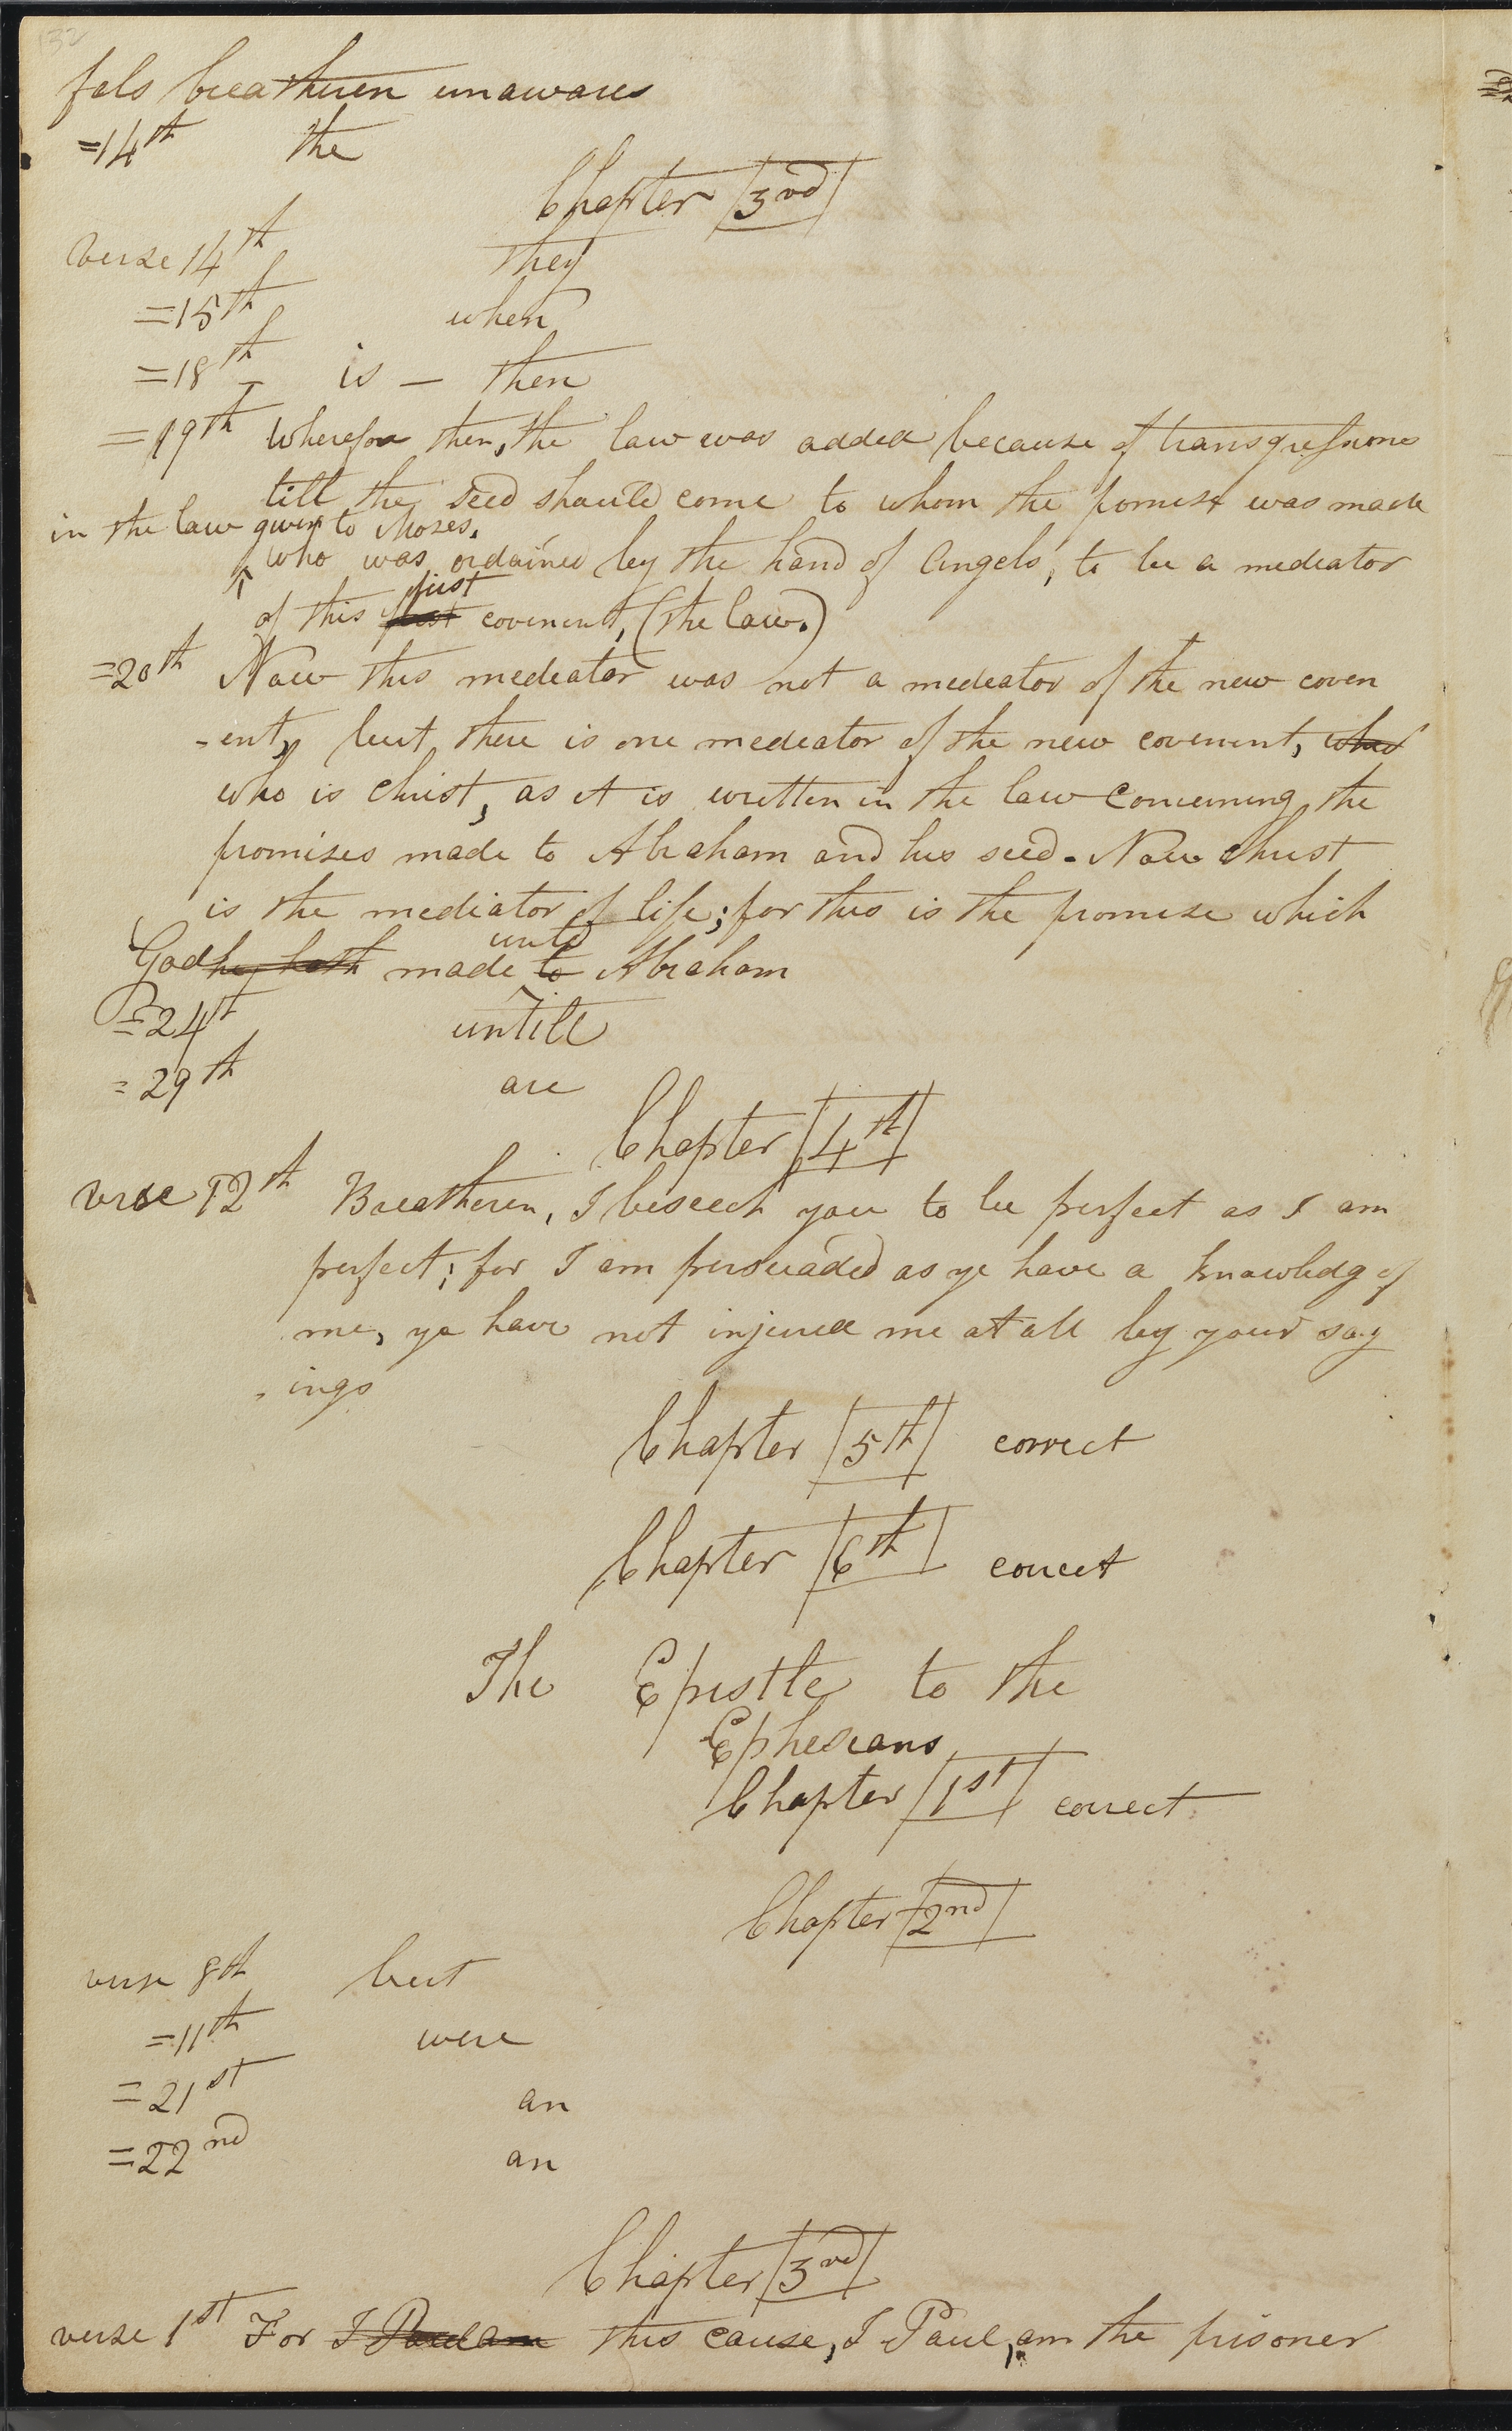 132
fals breatheren unawares
=14th the
Chapter 3rd
verse 14th they
=15th when
=18th is — then
=19th Wherefore then, the law was added because of transgressions
till the seed should come to whom the promise was made
in the law given to Moses,
who was ordained by the hand of Angels, to be a mediator
first
of this first covenent, (the law.)
=20th Now this mediator was not a mediator of the new coven
-ent, but there is one mediator of the new covenent, who
who is christ, as it is written in the law concerning the
promises made to Abraham and his seed. Now christ
is the mediator of life; for this is the promise which
unto
God he hath made to Abraham
=24th untill
=29th are
Chapter 4th
verse 12th Breatheren, I beseech you to be perfect as I am
perfect; for I am persuaded as ye have a knowledg of
me, ye have not injured me at all by your say
-ings
Chapter 5th correct
Chapter 6th correct
The Epistle to the
Ephesians
Chapter 1st correct
Chapter 2nd
verse 8th but
=11th were
=21st an
=22nd an
Chapter 3rd
verse 1st For I Paul am this cause, I Paul, am the prisoner